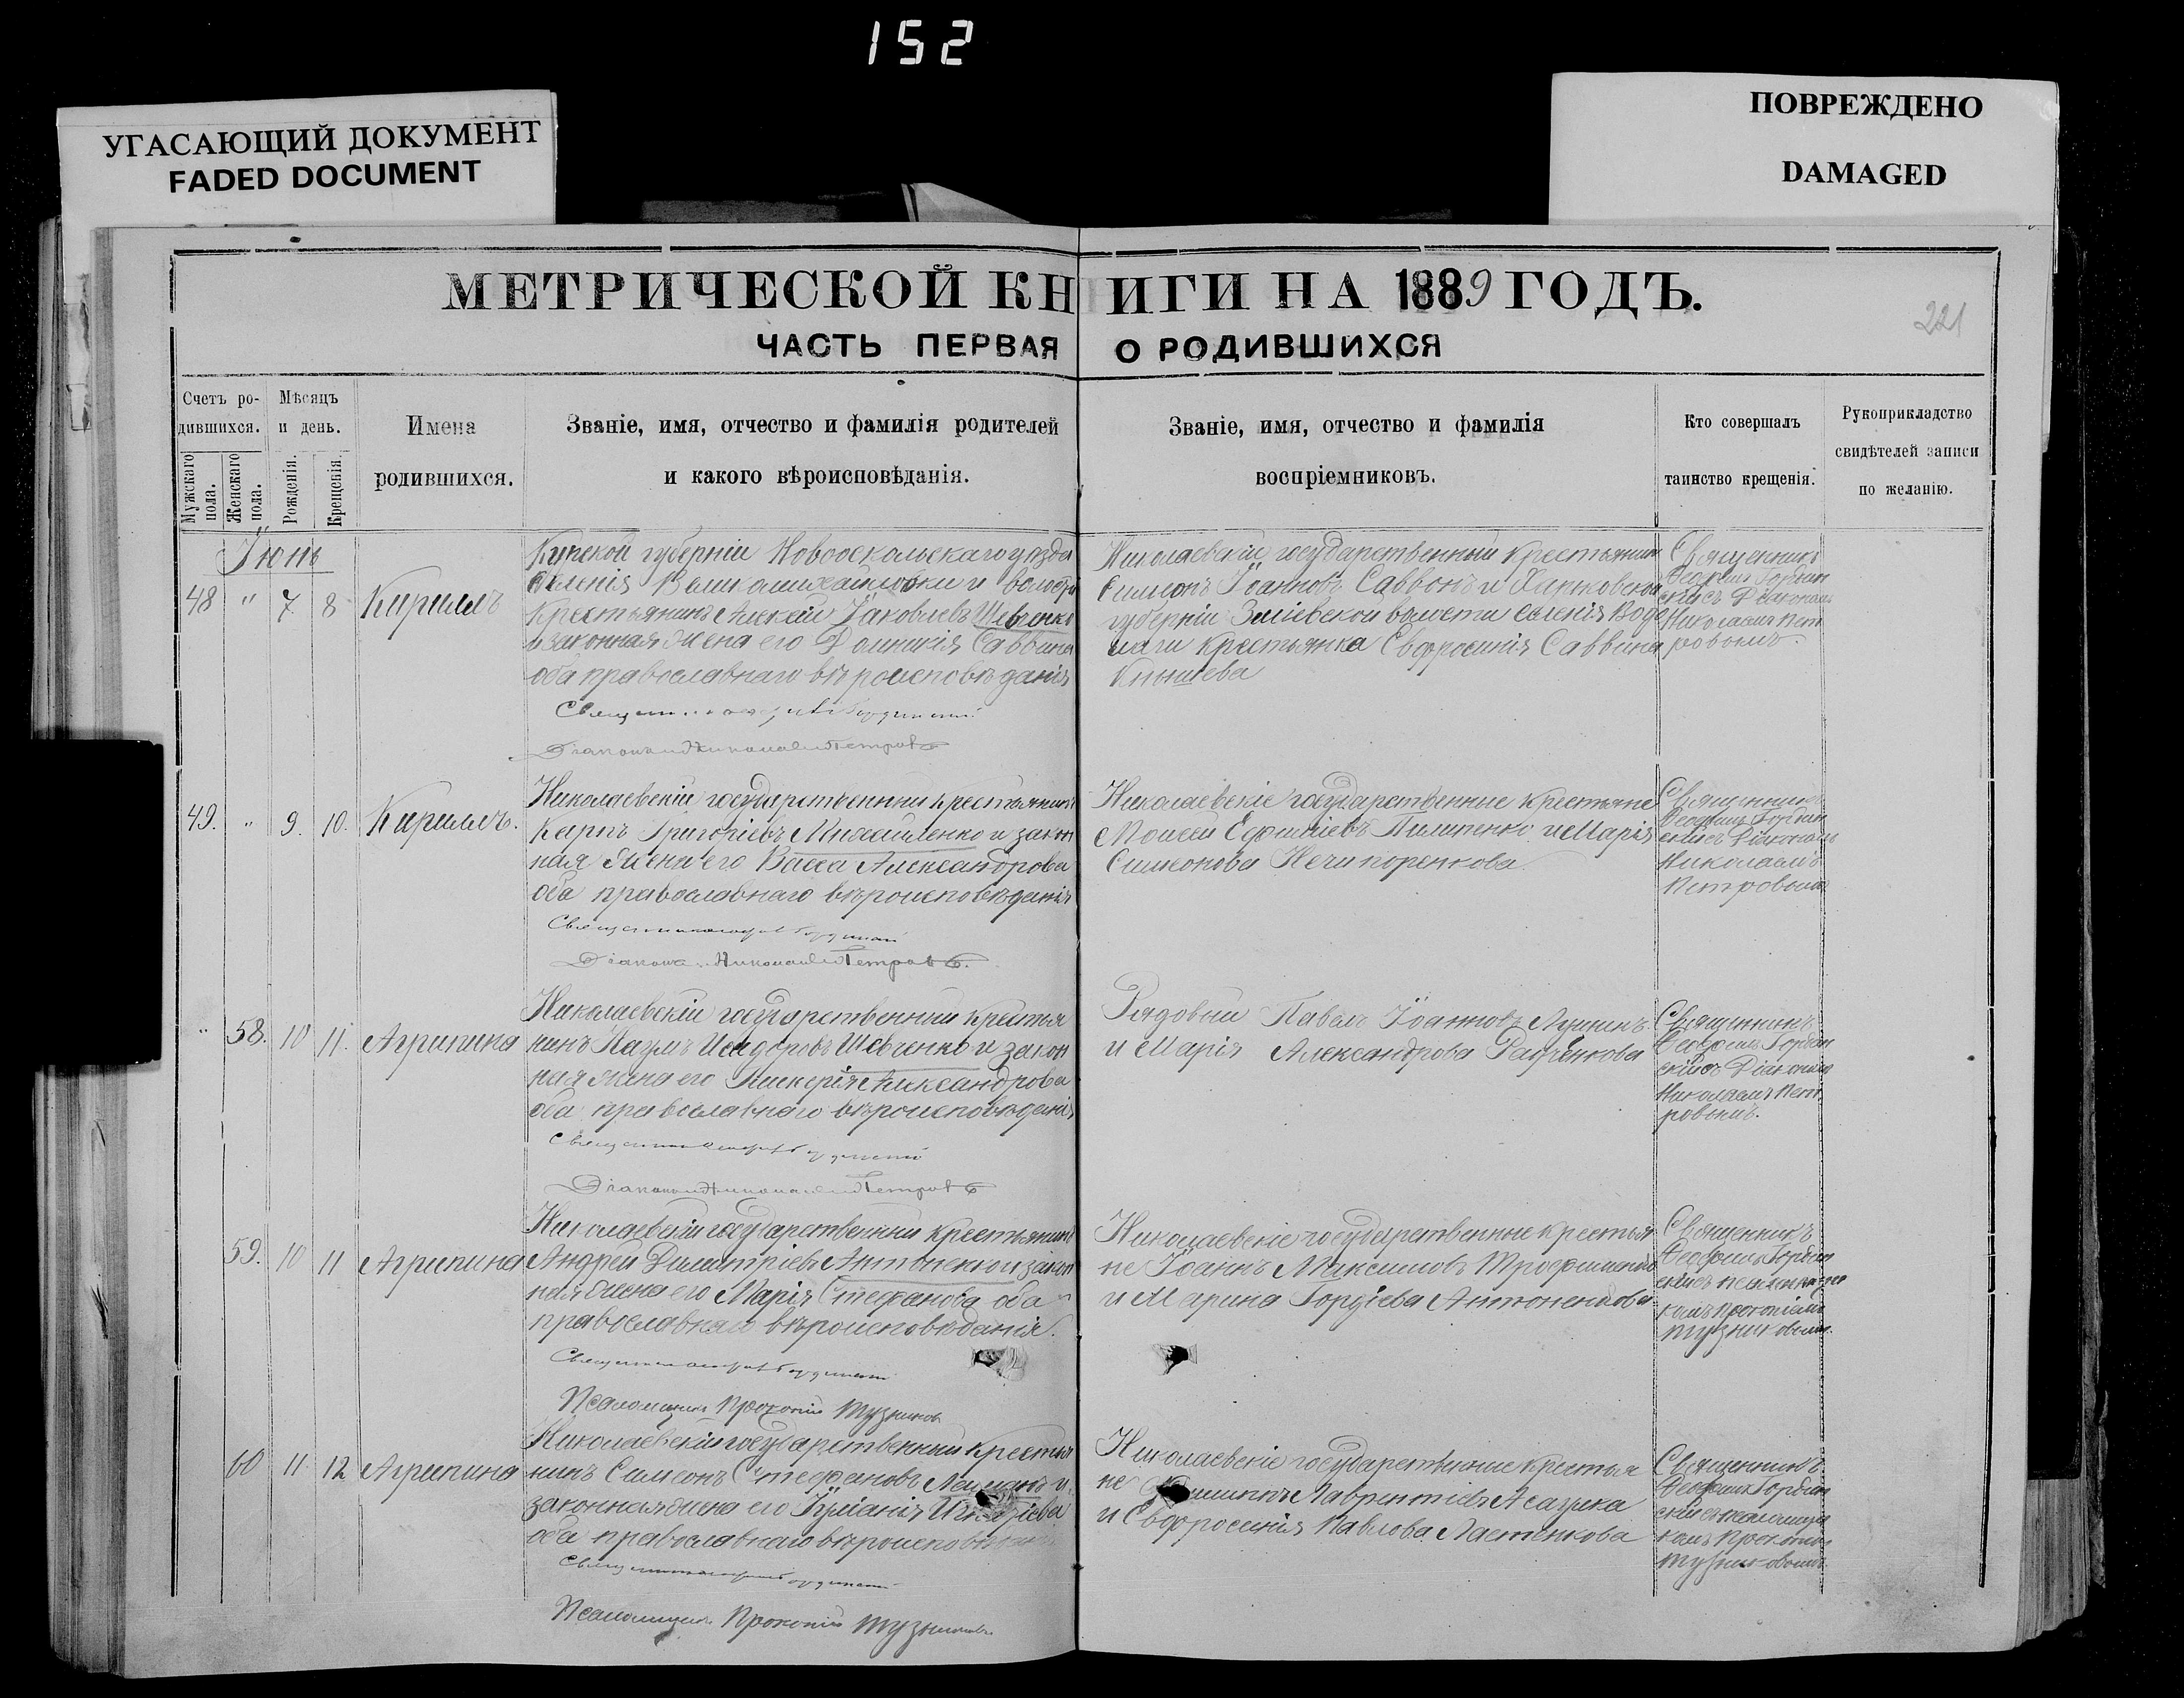 152
УГАСАЮЩИЙ ДОКУМЕНТ
FADED DOCUMENT
ПОВРЕЖДЕНО
DAMAGED
МЕТРИЧЕСКОЙ КНИГИ НА 1889 ГОДЪ.
221
ЧАСТЬ ПЕРВАЯ О РОДИВШИХСЯ
Счетъ ро-
дившихся.
Мужскаго пола.
Женскаго пола.
Мѣсяцъ
и день.
Рожденія.
Крещенія.
Имена
родившихся.
Званіе, имя, отчество и фамилія родителей
и какого вѣроисповѣданія.
Званіе, имя, отчество и фамилія
воспріемниковъ.
Кто совершалъ
таинство крещенія.
Рукоприкладство
свидѣтелей записи
по желанію.
Іюнь
48 " 7 8 Кириллъ
Курской губерніи Новооскольскаго уѣзда
селенія Великомихайловки и волости
Крестьянинъ Алексѣй Іаковлевъ Шевченко
и законная жена его Домникія Саввина
оба православнаго вѣроисповѣданія
Священникъ
Діаконъ Николай Петровъ
Николаевскій государственный крестьянинъ
Симеонъ Іоанновъ Саввонъ и Харьковской
губерніи Зміевской волости селенія Водо
лаги крестьянка Евфросинія Саввина
Священникъ
скій съ Діакономъ
Николаемъ Пет
ровымъ.
49. " 9. 10. Кириллъ.
Николаевскій государственный крестьянинъ
Карпъ Григоріевъ Михайленко и закон
ная жена его Васса Александрова
оба православнаго вѣроисповѣданія
Священникъ
Діаконъ Николай Петровъ.
Николаевскіе государственные крестьяне
Моисей Ефиміевъ Пилипенко и Марія
Симеонова Нечипоренкова
Священникъ
скій съ Діакономъ
Николаемъ
Петровымъ
" 58. 10 11. Агрипина
Николаевскій государственный крестья
нинъ Наумъ Исидоровъ Шевченко и закон
ная жена его Гликерія Александрова
оба православнаго вѣроисповѣданія
Священникъ
Діаконъ Николай Петровъ
Рядовый Павелъ Іоанновъ Лунинъ
и Марія Александрова Радченкова
Священникъ
скій съ Діакономъ
Николаемъ Пет
ровымъ.
59. 10 11 Агрипина
Николаевскій государственный крестьянинъ
Андрей Димитріевъ Антоненко и закон
ная жена его Марія Стефанова оба
православнаго вѣроисповѣданія.
Священникъ
Псаломщикъ Прокопій Тузниковъ
Николаевскіе государственные крестья
не Іоаннъ Максимовъ Трофименко
и Марина Гордіева Антоненкова
Священникъ
скій съ псаломщи
комъ Прокопіемъ
Тузниковымъ.
60 11 12 Агрипина
Николаевскій государственный крестья
нинъ Самсонъ Стефановъ и
законная жена его Іуліанія
оба православнаго вѣроисповѣданія
Священникъ
Псаломщикъ Прокопій Тузниковъ.
Николаевскіе государственные крестья
не Лаврентіевъ
и Евфросинія Павлова Ластенкова
Священникъ
скій съ псаломщи
комъ Прокопіемъ
Тузниковымъ.